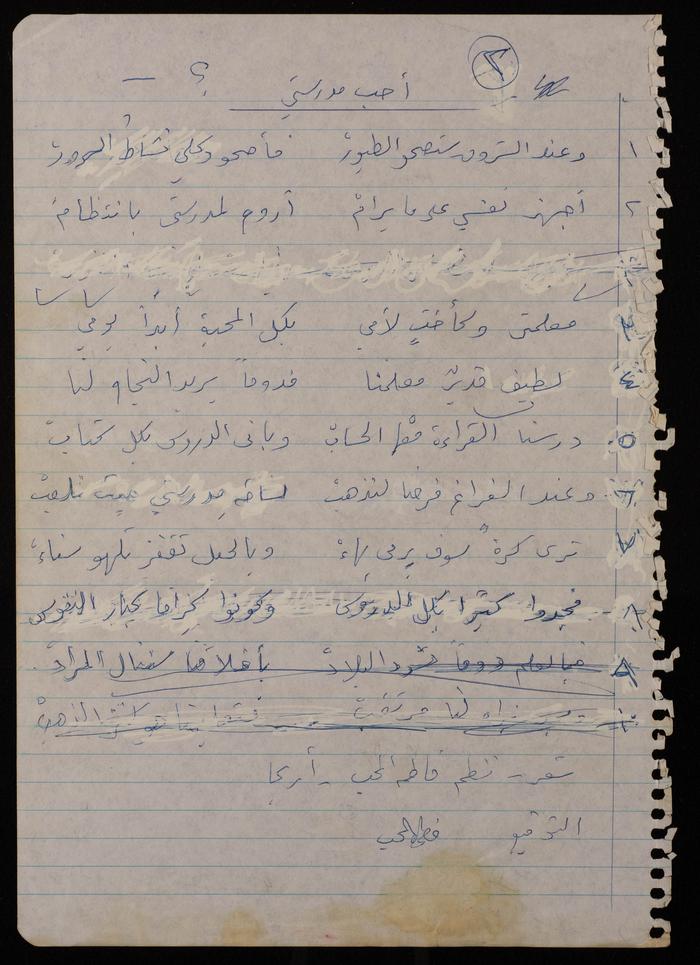 ٢
أحب مدرستي ؟ —
١ وعند الشروق ستصحو الطيورْ فأصحو وكلي نشاط السرورْ
٢ أجهز نفسي على ما يرامْ أروح لمدرستي بانتظامْ
معلمتي وكأختٍ لأمي بكل المحبة أبدأ يومي
لطيف قديرٌ معلمنا فدوماً يريد النجاح لنا
٥ درسنا القراءة معْها الحسابْ وباقي الدروس بكل كتابْ
٦ وعند الفراغ فرضنا لنذهبْ لساحة مدرستي حيث نلعبْ
٧ ترى كرة سوف يرمى بهاءْ وبالحبل تقفز تلهو سناءْ
٨ فجدوا كثيرا بكل الدروس وكونوا كراما كبار النفوس
٨ فبالعلم دوماً تسود البلادْ بأخلاقنا سننال المرادْ
لنا
شعر - نظم فاطمة المحب - أريحا
التوقيع فاطمة المحب